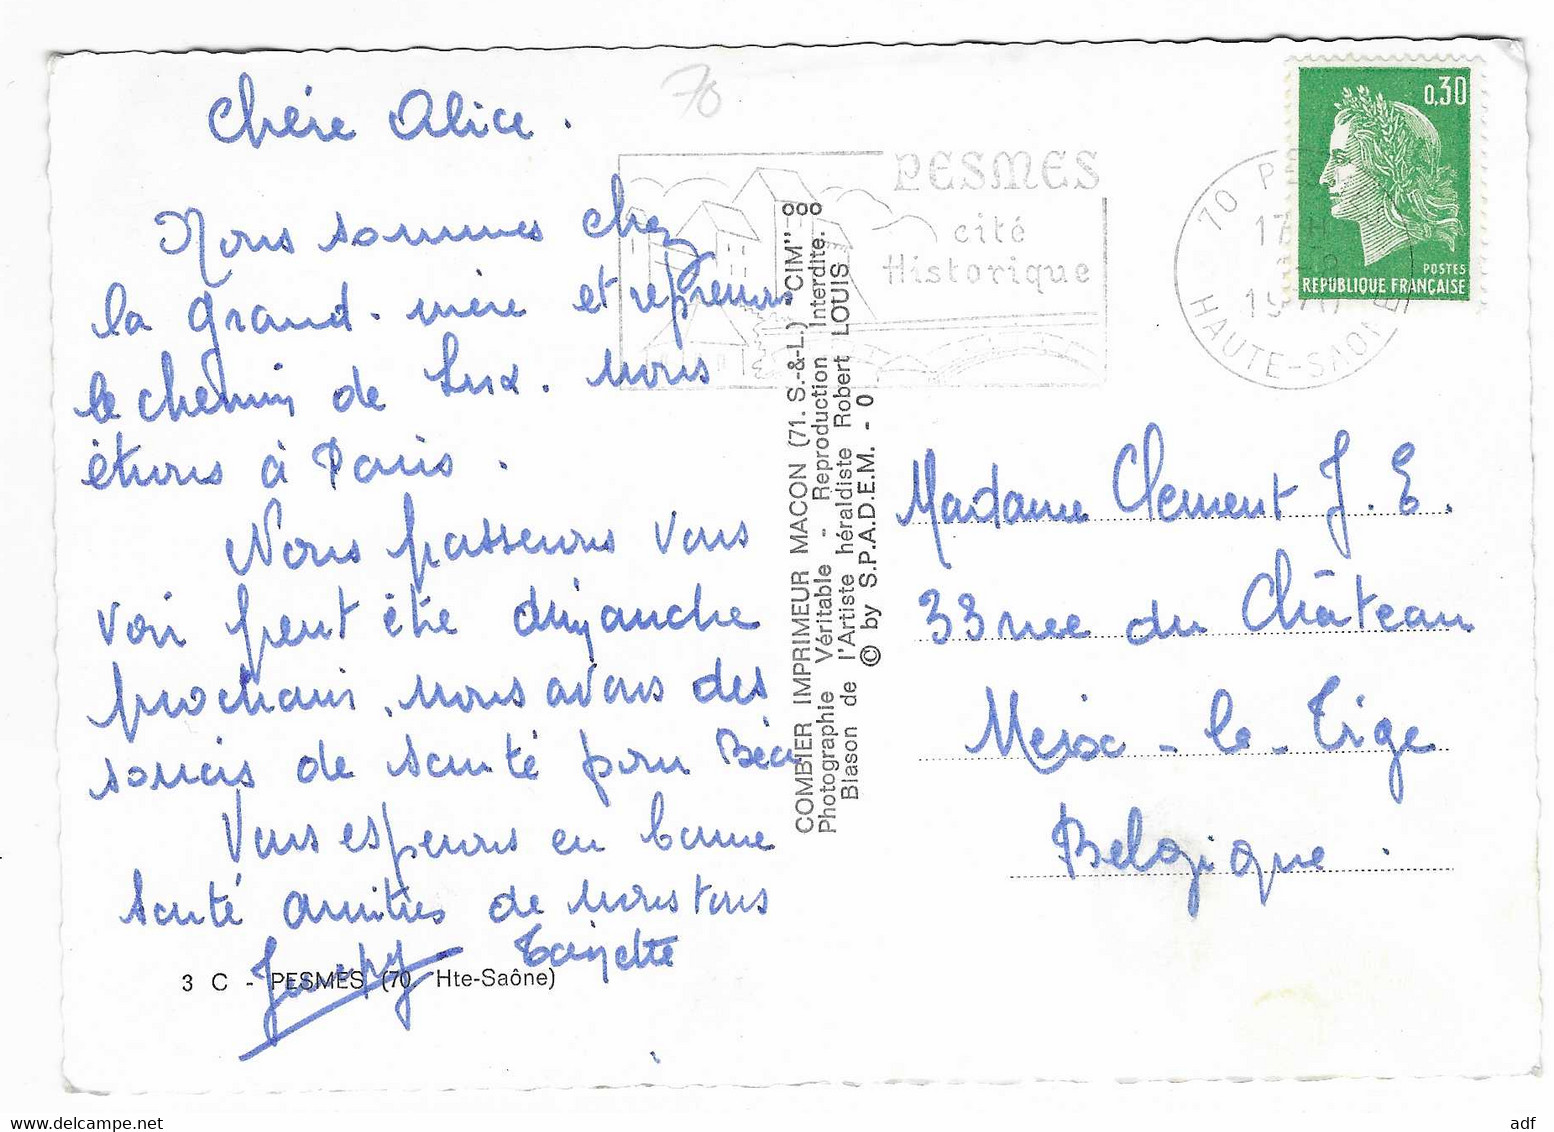 Chère Alice.
Nous sommes chez
la grand-mère et reprenons
le chemin de Lux. nous
étions à Paris.
Nous passerons vous
voir peut être dimanche
prochain, nous avons des
soucis de santé pour
Vous espérons en bonne
santé amitiés de nous tous
3 C - PESMES (70. Hte-Saône)
70
PESMES
cité
Historique
COMBIER IMPRIMEUR MACON (71. S.-&-L.) "CIM"
Photographie Véritable - Reproduction Interdite.
Blason de l'Artiste héraldiste Robert LOUIS
© by S.P.A.D.E.M. - 0
0,30
POSTES
REPUBLIQUE FRANÇAISE
70
17 H
19
HAUTE-SAONE
Madame Clement J. E.
33 rue du Château
Meix-le-Tige
Belgique.
adf
www.delcampe.net